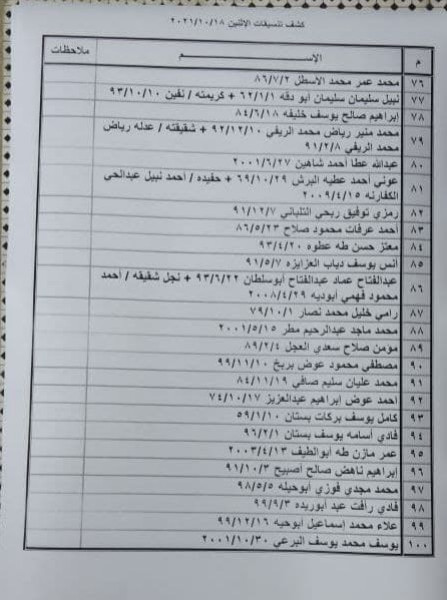 كشف تنسيقات الاثنين ٢٠٢١/١٠/١٨
م الاســـــــم ملاحظات
٧٦ محمد عمر محمد الأسطل ٨٦/٧/٢
٧٧ نبيل سليمان سليمان أبو دقه ٦٢/١/١ + كريمته / نفين ٩٣/١٠/١٠
٧٨ إبراهيم صالح يوسف خليفه ٨٤/٦/١٨
٧٩ محمد منير رياض محمد الريفي ٩٢/١٢/١٠ + شقيقته / عدله رياض
محمد الريفي ٩١/٢/٨
٨٠ عبدالله عطا أحمد شاهين ٢٠٠١/٦/٢٧
٨١ عوني أحمد عطيه البرش ٦٩/١٠/٢٩ + حفيده / أحمد نبيل عبدالحي
الكفارنه ٢٠٠٩/٤/١٥
٨٢ رمزي توفيق ربحي التلباني ٩١/١٢/٧
٨٣ أحمد عرفات محمود صلاح ٨٦/٥/٢٣
٨٤ معتز حسن طه عطوه ٩٣/٤/٢٠
٨٥ أنس يوسف دياب العزايزه ٩١/٥/٧
٨٦ عبدالفتاح عماد عبدالفتاح أبوسلطان ٩٣/٦/٢٢ + نجل شقيقه / أحمد
محمود فهمي أبوديه ٢٠٠٨/٤/٢٩
٨٧ رامي خليل محمد نصار ٧٩/١٠/١
٨٨ محمد ماجد عبدالرحيم مطر ٢٠٠١/٥/١٥
٨٩ مؤمن صلاح سعدي العجل ٨٩/٢/٤
٩٠ مصطفي محمود عوض بربخ ٩٩/١١/١٠
٩١ محمد عليان سليم صافي ٨٤/١١/١٩
٩٢ احمد عوض ابراهيم عبدالعزيز ٧٤/١٠/١٧
٩٣ كامل يوسف بركات بستان ٥٩/١/١٠
٩٤ فادي أسامه يوسف بستان ٩٦/٢/١
٩٥ عمر مازن طه أبوالطيف ٢٠٠٣/٤/١٣
٩٦ إبراهيم ناهض صالح أصبيح ٩١/١٠/٣
٩٧ محمد مجدي فوزي أبوحيله ٩٨/٥/٥
٩٨ فادي رأفت عبد أبوريده ٩٩/٩/٣
٩٩ علاء محمد إسماعيل أبوحيه ٩٩/١٢/١٦
١٠٠ يوسف محمد يوسف البرعي ٢٠٠١/١٠/٣٠